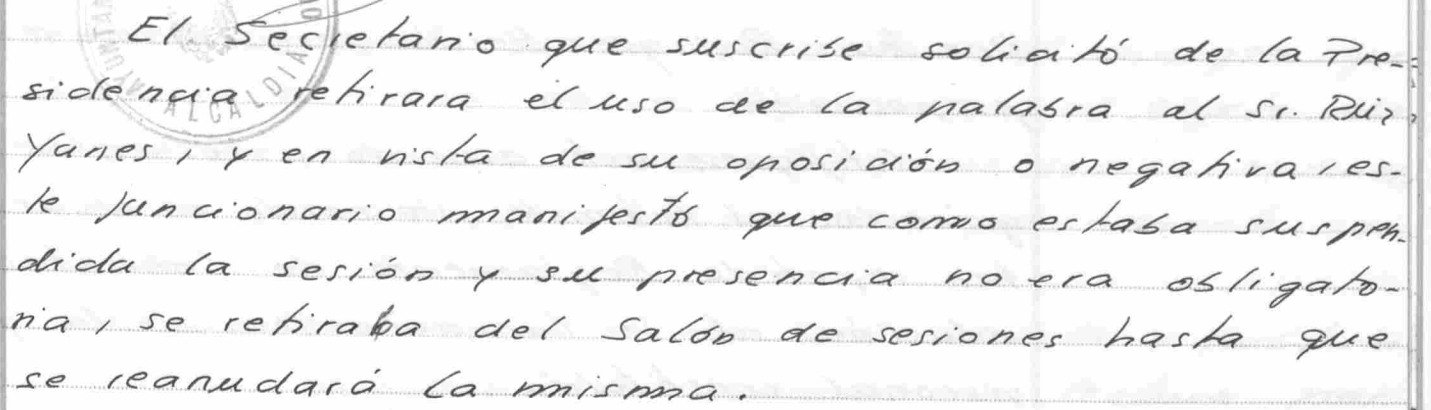 El Secretario que suscribe solicitó de la Pre-
sidencia retirara el uso de la palabra al Sr. Ruiz
Yanes, y en vista de su oposición o negativa, es-
te funcionario manifestó que como estaba suspen-
dida la sesión y su presencia no era obligato-
ria, se retiraba del Salón de sesiones hasta que
se reanudará la misma.
ALCALDIA